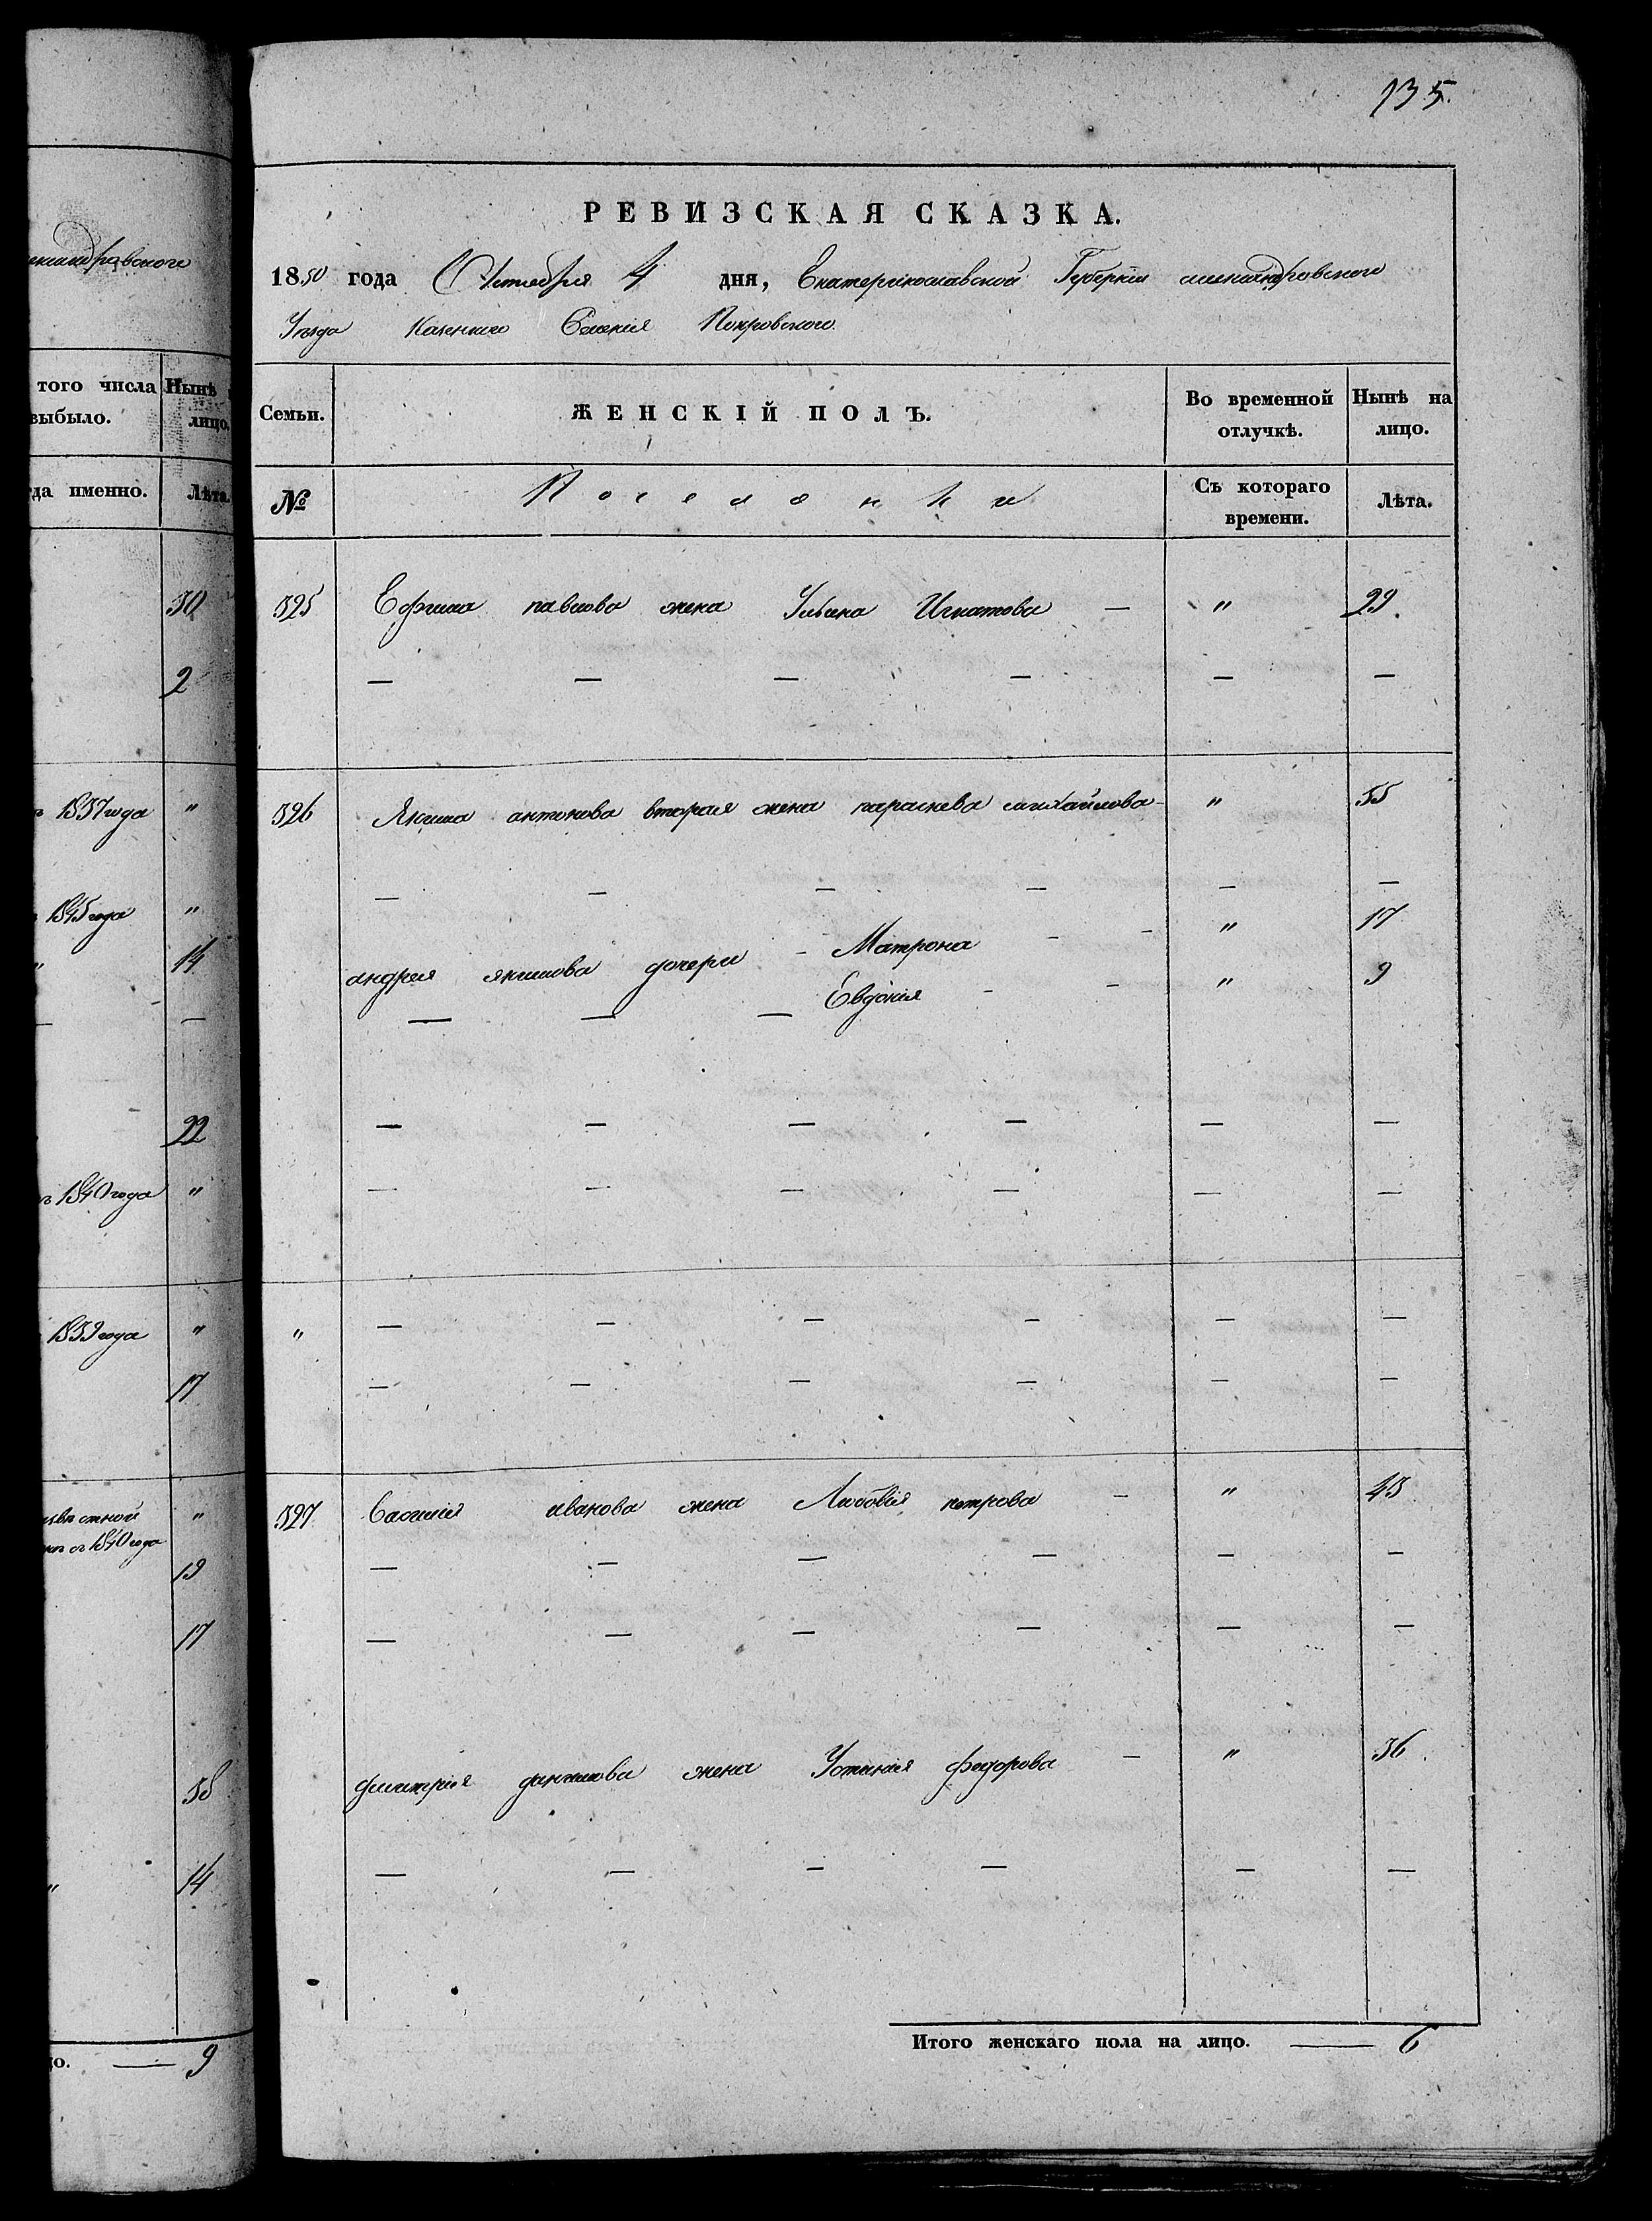 135.
ександровского
того числа Нынѣ
выбыло. лицо.
да именно. Лѣта.
30
2
1837 года "
1845 года "
" 14
— —
22
1840 года "
1839 года "
17
стной "
съ 1840 года
19
17
38
" 14
о. — 9
РЕВИЗСКАЯ СКАЗКА.
1850 года Октября 4 дня, Екатеринославской Губернии александровского
Уѣзда Казенного Селения Покровского.
Семьи. ЖЕНСКІЙ ПОЛЪ. Во временной отлучкѣ. Нынѣ на лицо.
№ Поселянки Съ котораго времени. Лѣта.
325 Ефима павлова жена Ульяна Игнатова — " 29.
— — — — — —
326 Якима антонова вторая жена параскева михайлова - " 55
— — — — — —
андрея якимова дочери - Матрона - - " 17
Евдокія - - " 9
— — —
— — — — — —
— — — — — —
" — — — — — —
— — — — — —
327 Василія иванова жена Любовія петрова — " 43
— — — — — —
— — — — — —
дмитрія данилова жена Устинія федорова — " 36.
— — — — — —
Итого женскаго пола на лицо. — 6